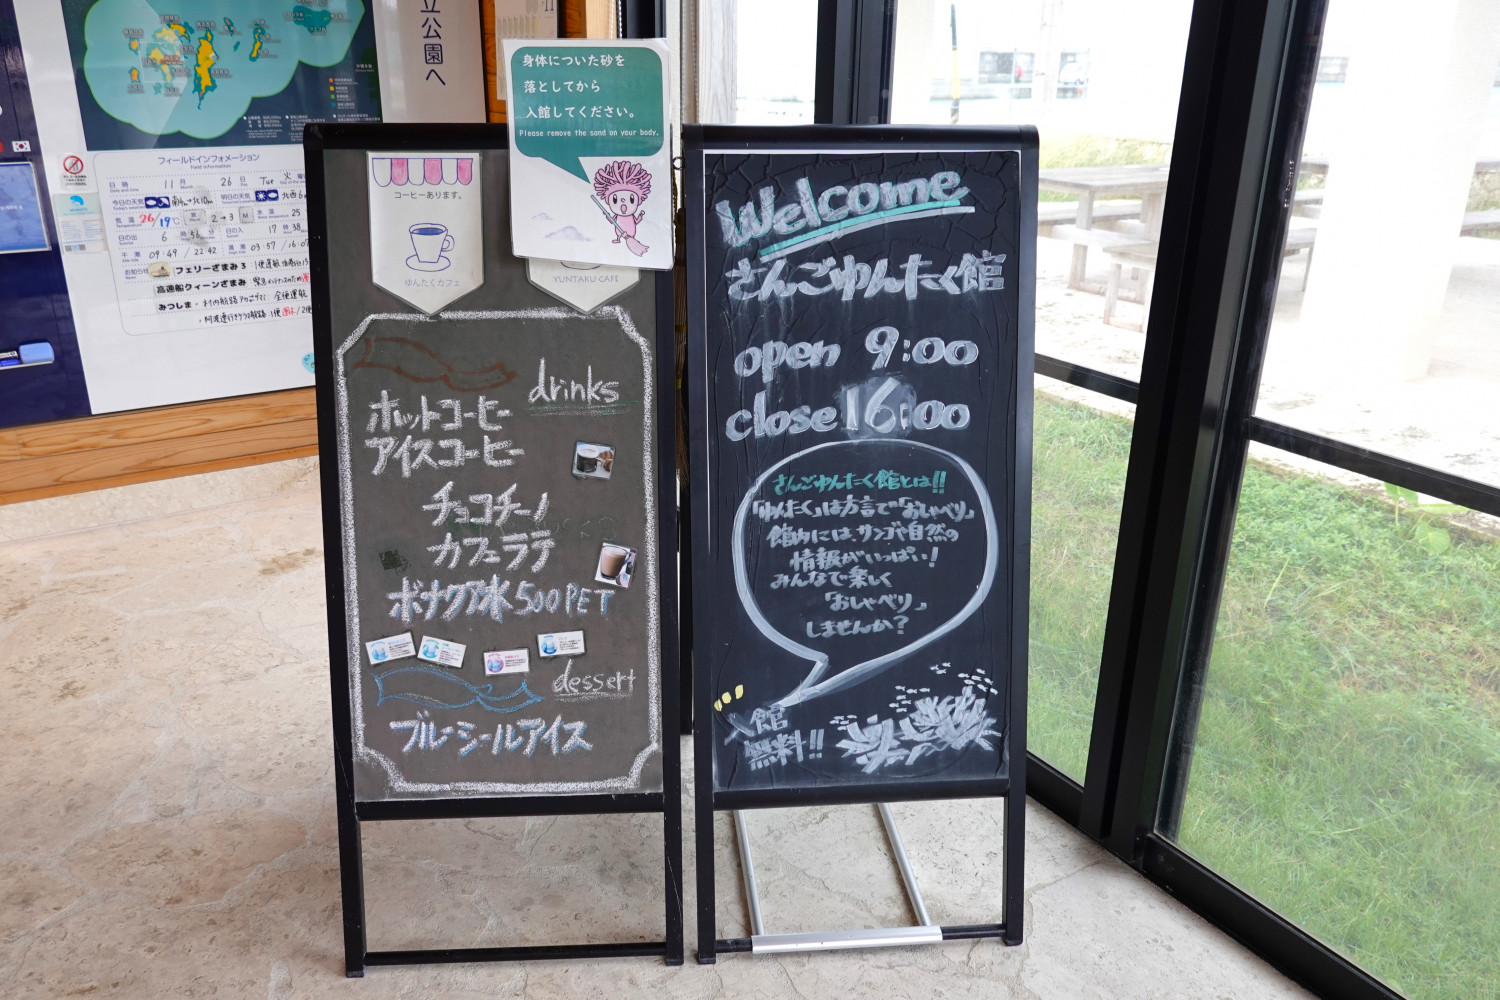 立公園へ
フィールドインフォメーション
Field Information
日時 11月 26日 Tue 火曜
今日の天気
明日の天気
気温 26/19℃ 2→3M 水温 25
日の出 6時56分 日の入 17時38
干潮 09:49 / 22:42 満潮 03:57 / 16:07
お知らせ フェリーざまみ3
高速船クィーンざまみ
みつしま
身体についた砂を
落としてから
入館してください。
Please remove the sand on your body.
コーヒーあります。
ゆんたくカフェ
YUNTAKU CAFE
drinks
ホットコーヒー
アイスコーヒー
チョコチーノ
カフェラテ
ボナクア水 500PET
dessert
ブルーシールアイス
Welcome
さんごゆんたく館
open 9:00
close 16:00
さんごゆんたく館とは!!
「ゆんたく」は方言で「おしゃべり」
館内には、サンゴや自然の
情報がいっぱい!
みんなで楽しく
「おしゃべり」
しませんか?
入館
無料!!